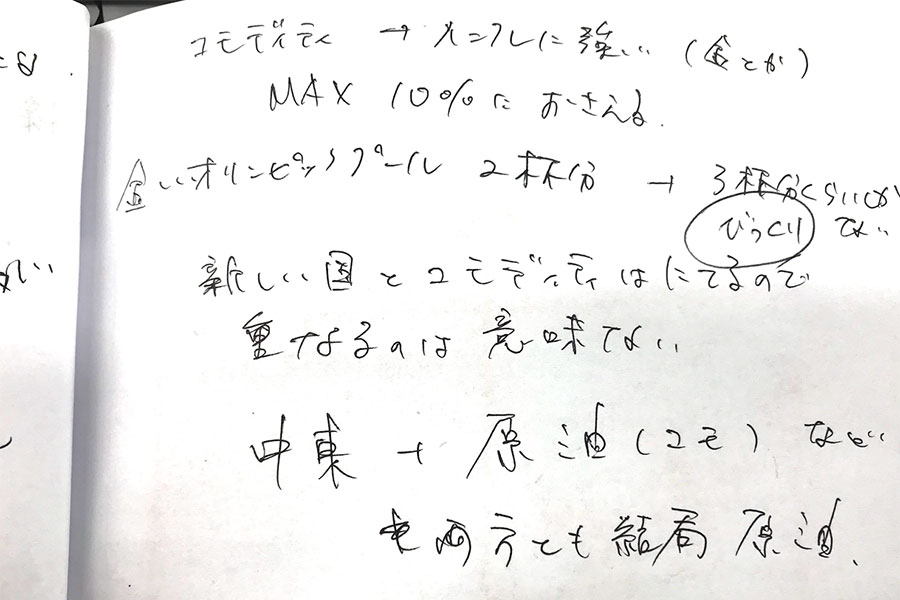 コモディティ → インフレに強い (金とか)
MAX 10%に おさえる.
金 オリンピックプール 2杯分 → 3杯分くらいしか
びっくり ない
新しい国とコモディティはにてるので
重なるのは意味ない
中東 + 原油(コモ) など
両方とも結局 原油.